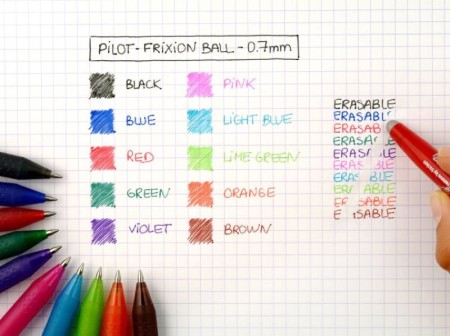 PILOT - FRIXION BALL - 0.7mm
BLACK
BLUE
RED
GREEN
VIOLET
PINK
LIGHT BLUE
LIME GREEN
ORANGE
BROWN
ERASABLE
ERASABL
ERASAB
ERASAB E
ERASA LE
ERASA BLE
ERAS BLE
ERA ABLE
ER SABLE
E ASABLE